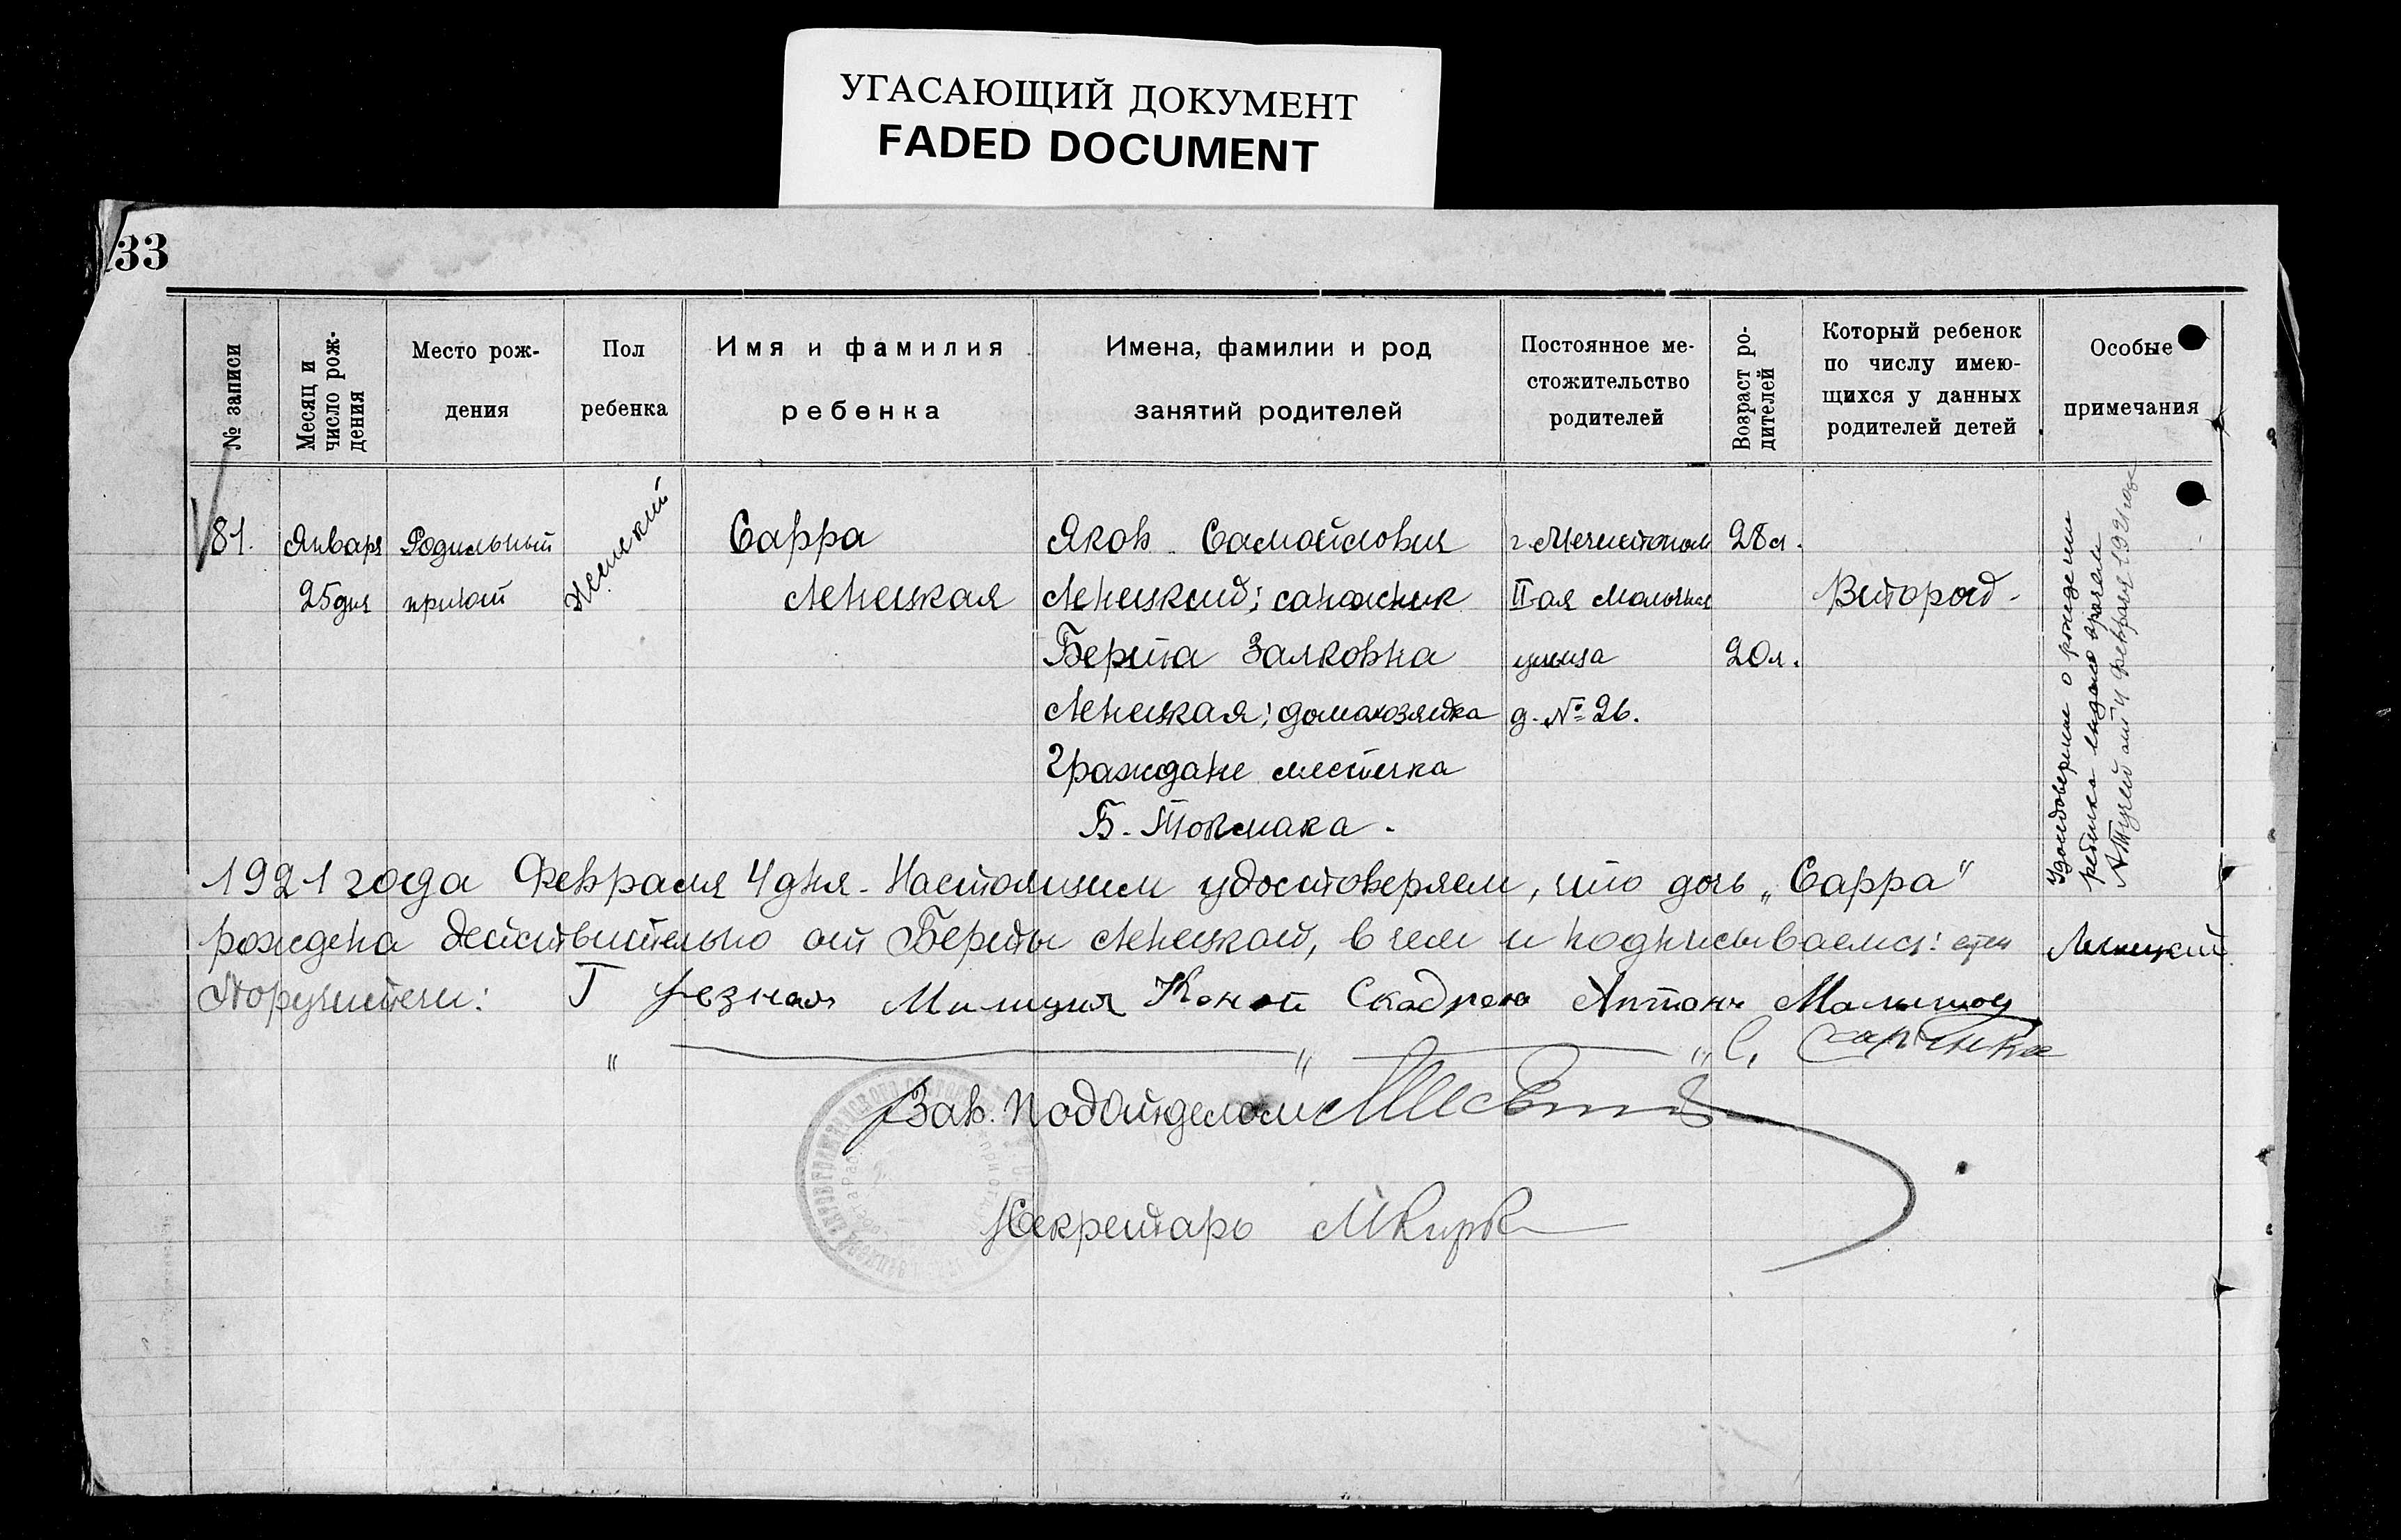 УГАСАЮЩИЙ ДОКУМЕНТ
FADED DOCUMENT
33
№ записи
Месяц и
число рож-
дения
Место рож-
дения
Пол
ребенка
Имя и фамилия
ребенка
Имена, фамилии и род
занятий родителей
Постоянное ме-
стожительство
родителей
Возраст ро-
дителей
Который ребенок
по числу имею-
щихся у данных
родителей детей
Особые
примечания
81.
Января
25 дня
Родильный
приют
Женский
Сарра
Ленецкая
Яков Самойлович
Ленецкий; сапожник
Берта Залковна
Ленецкая; домахозяйка
Граждане местечка
Б. Токмака.
г. Мелитополь
II ая Мал
улица
д. № 26.
28 л.
20 л.
Второй.
Удостоверение о рождении
ребенка выдано врачем
от 4 февраля 1921 года
1921 года Февраля 4 дня. Настоящим удостоверяем, что дочь „Сарра"
рождена действительно от Берты Ленецкой, в чем и подписываемся: отец Ленецкий
Поручители: Г уезная Милиция Коной Скадрон Антон
" " "С,
Зав. Подотделом
Секретарь